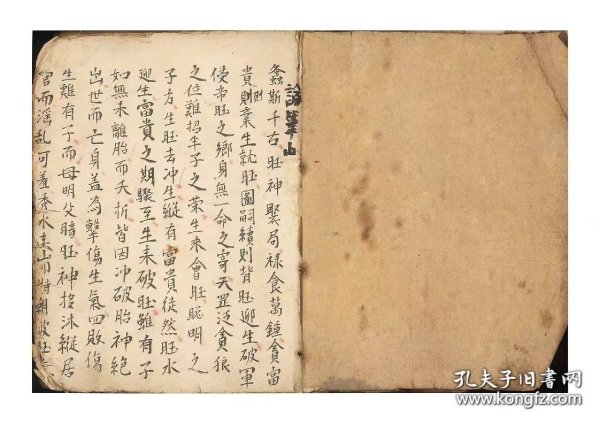 論
螽斯千古旺神聚局禄食萬鍾貪富
貴則棄生就旺圖嗣續則背旺迎生破軍
侵帝旺之鄉身無一命之寄天罡泛貪狼
之位難招半子之榮生來會旺聰明之
子方生旺去冲生縱有富貴徒然旺水
迎生富貴之期驟至生来破旺雖有子
如無未離胎而夭折皆因冲破胎神絶
出世而亡身盖為擊傷生氣四敗傷
生雖有子而母明父暗旺神投沐縱居
官而淫乱可羞秀水
孔夫子旧書网
www.kongfz.com